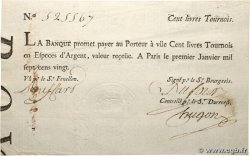 N.o 525567 Cent livres Tournois.
LA BANQUE promet payer au Porteur à vüe Cent livres Tournois
en Especes d'Argent, valeur reçeüe. A Paris le premier Janvier mil
sept cens vingt.
Vû p.r le S.r Fenellon. Signé p.r le S.r Bourgeois.
Controllé p.r le S.r Durevest.
www.cgb.fr